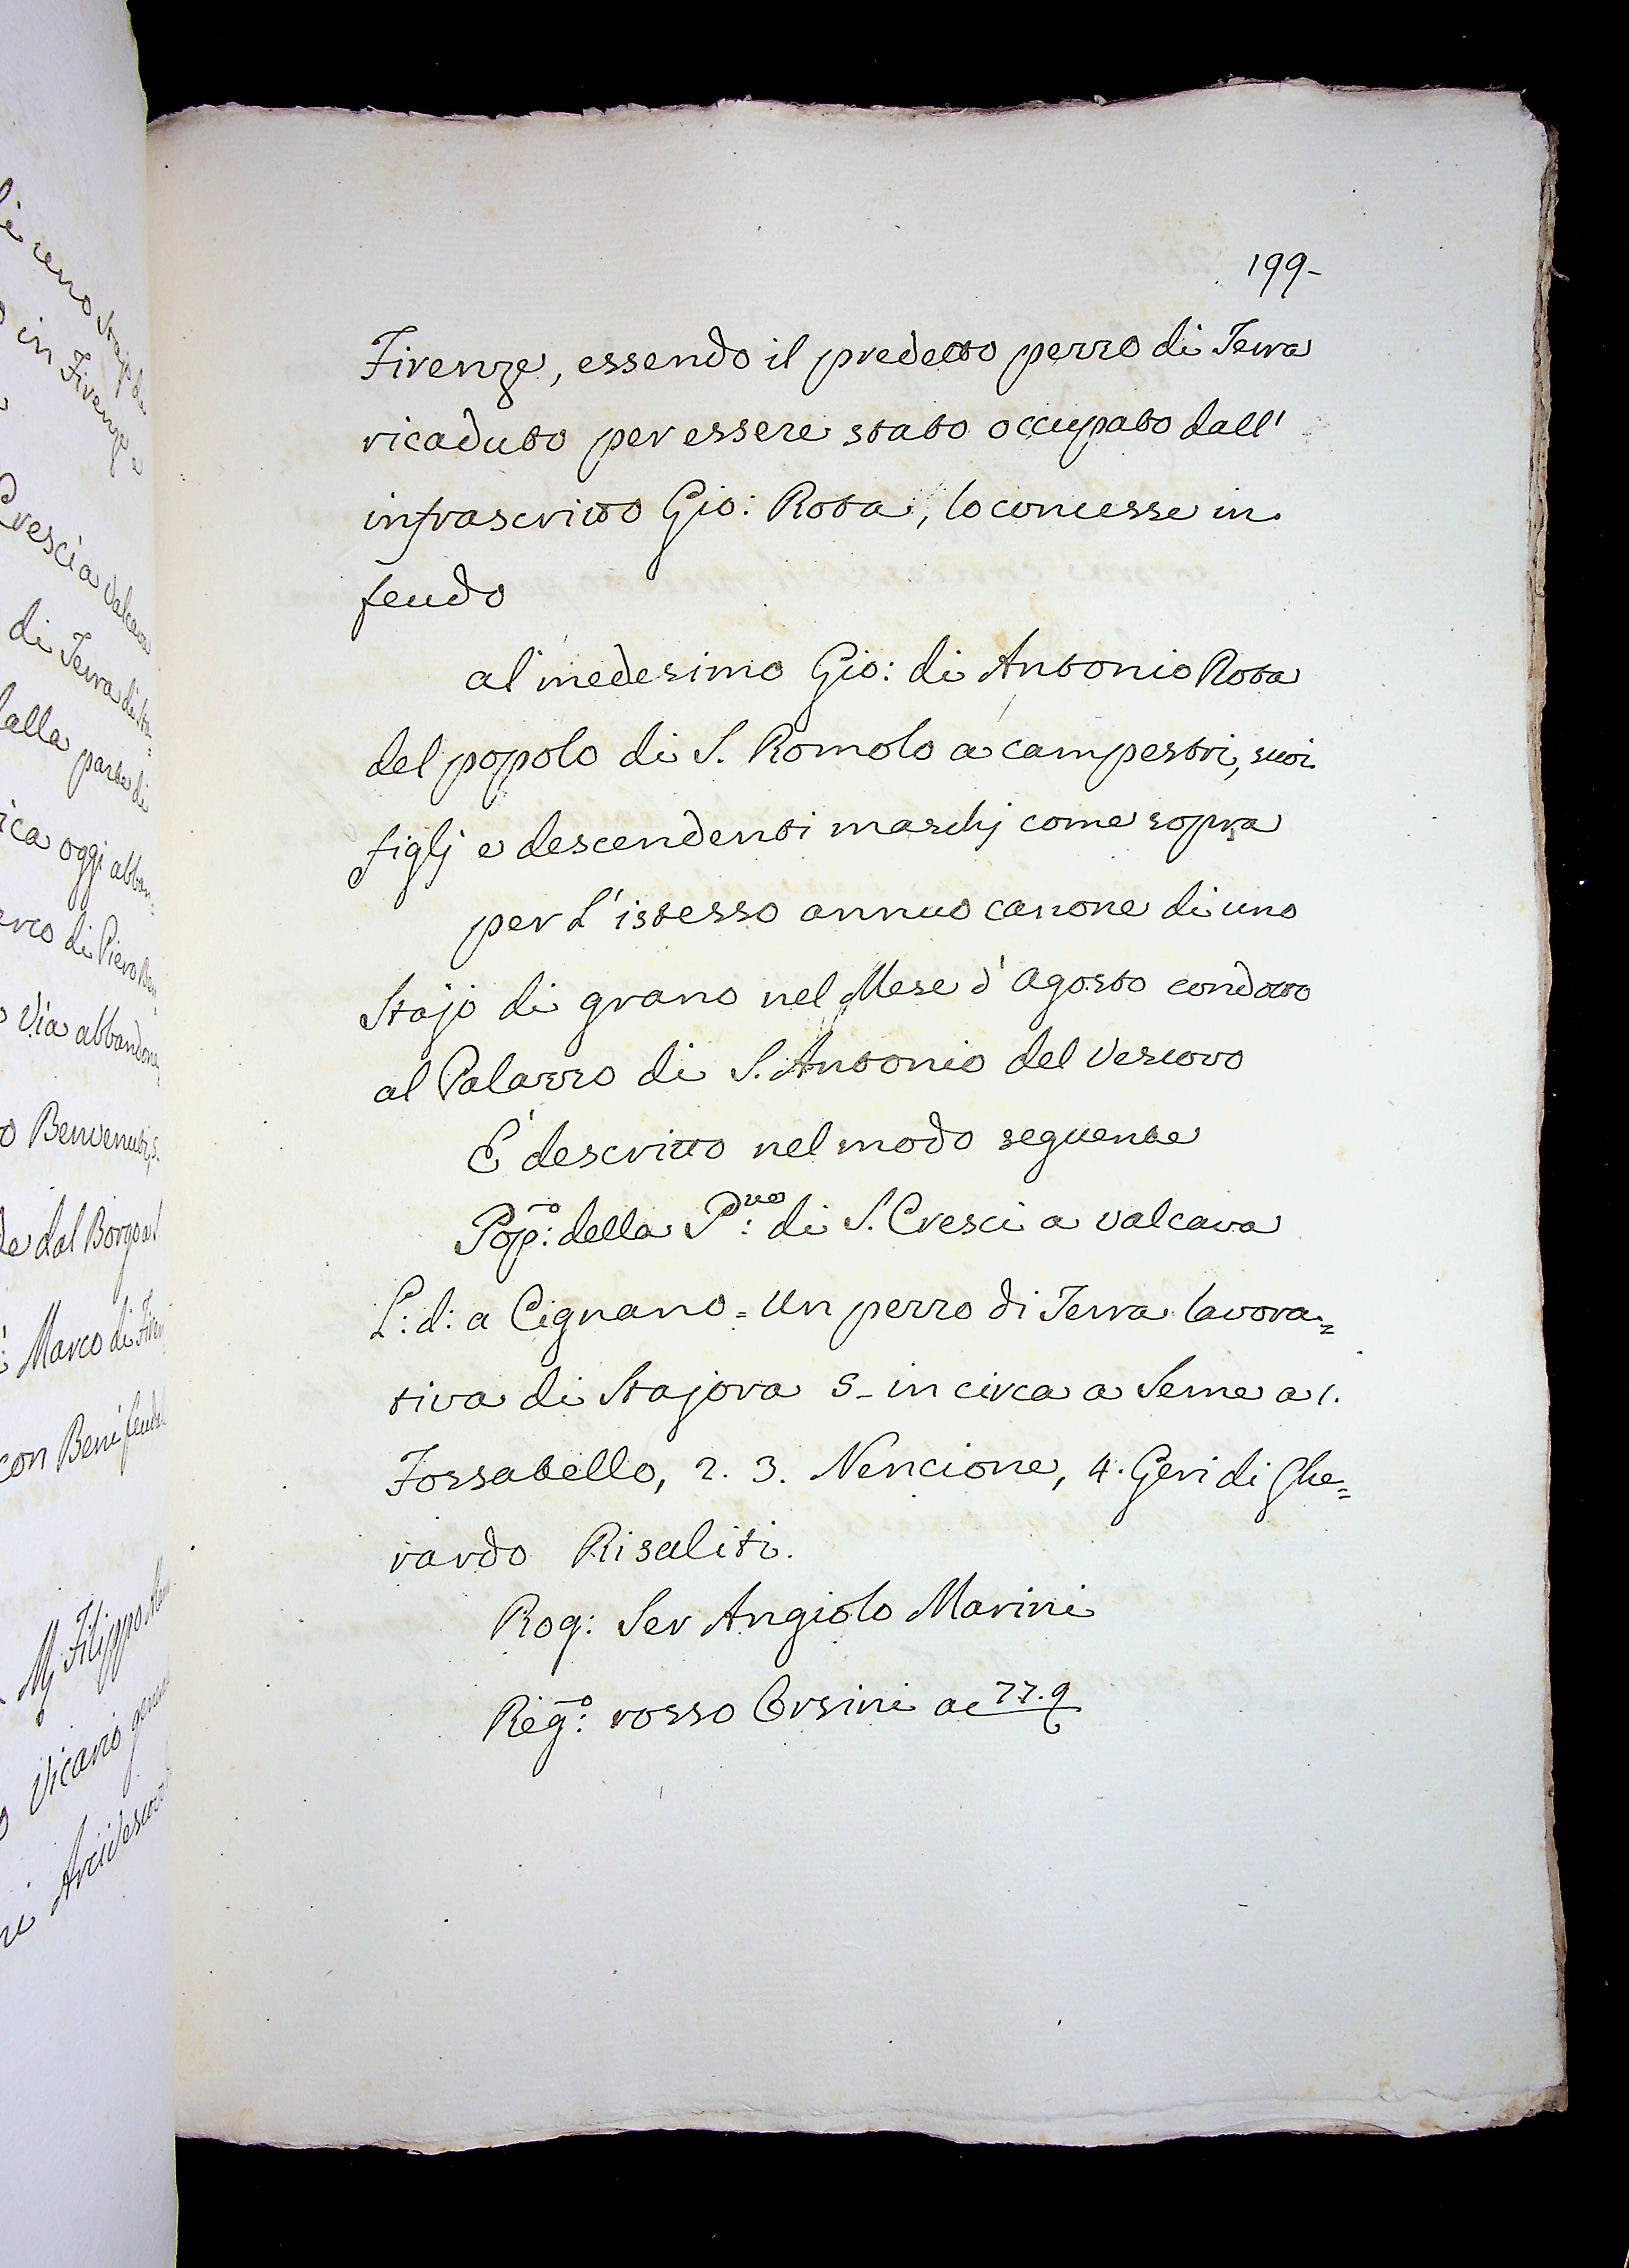 199-
Firenze, essendo il predetto pezzo di Terra
ricaduto per essere stato occupato dall'
infrascritto Gio: Rota, lo concesse in
feudo
al medesimo Gio: di Antonio Rota
del popolo di S. Romolo a campestri, suoi
figlj e descendenti maschj come sopra
per l'istesso annuo canone di uno
Stajo di grano nel Mese d'agosto condotto
al Palazzo di S. Antonio del Vescovo
E' descritto nel modo seguente
Pop:o della P:ve di S. Cresci a valcava
L: d: a Cignano = Un pezzo di Terra lavora=
tiva di Stajora 5- in circa a Seme a 1.
Fossatello, 2. 3. Nencione, 4. Geri di Ghe=
rardo Risaliti.
Rog: Ser Angiolo Marini
Reg:o rosso Orsini ac 77.
di Terra di
in Firenze
Cresci a Valcava
dalla parte di
oggi abban=
di Piero Ben
Via abbandona
Benvenuti
dal Borgo a
Marco di Firen
con Beni feuda
Mj Filippo
Vicario genera
Arcivescovo